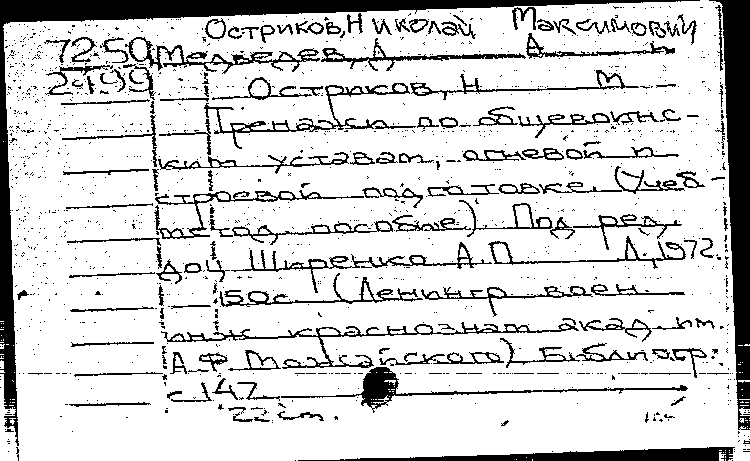 Остриков, Николай Максимович
72-50 Медведев, А А и
24199
Остриков, Н М
Тренажи по общевоинс-
ким уставам, огневой и
строевой подготовке. (Учеб-
метод. пособие) Под ред.
доц Ширенко А.П Л., 1972.
150с (Ленингр воен.
инж краснознам акад. им.
А.Ф. Можайского) Библиогр:
с 147
22 см.